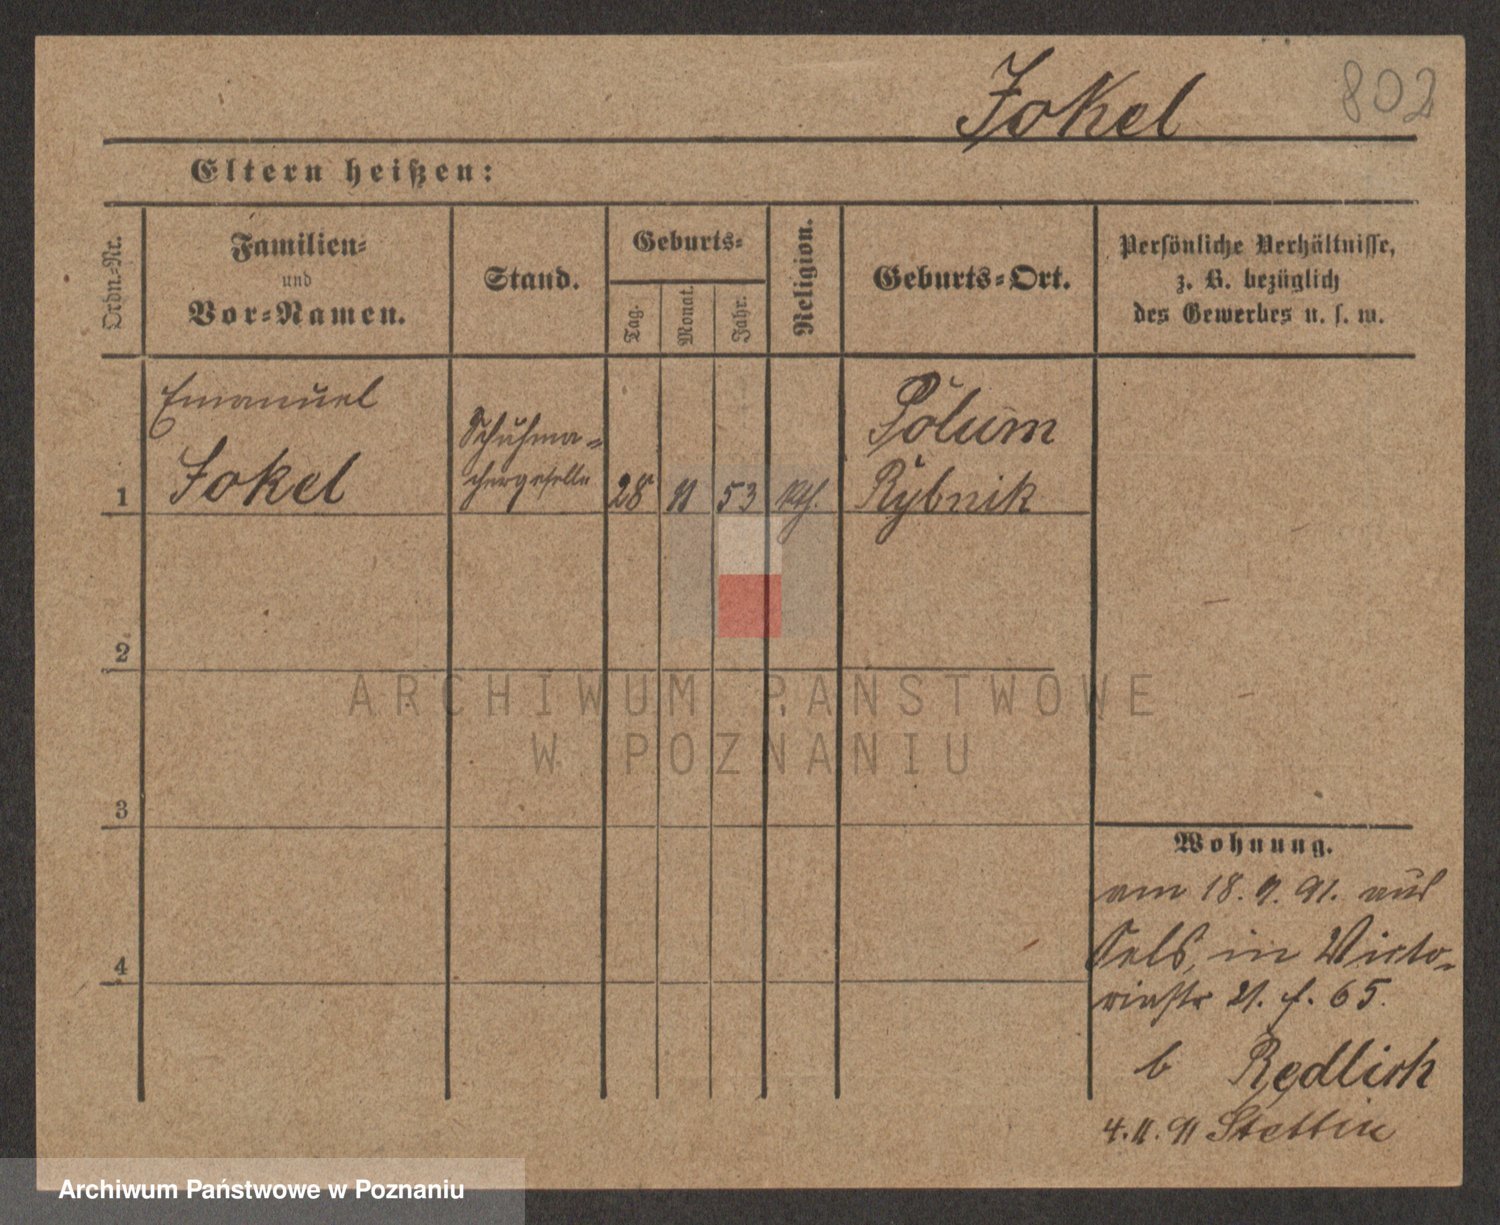 Jokel
802
Eltern heißen:
Ordn.-Nr.
Familien-
und
Vor-Namen.
Stand.
Geburts-
Tag.
Monat.
Jahr.
Religion.
Geburts-Ort.
Persönliche Verhältnisse,
z. B. bezüglich
des Gewerbes u. s. w.
Emanuel
Jokel
Schuhma-
chergeselle
28
11
53
kth.
Polum
Rybnik
1
2
3
4
ARCHIWUM PAŃSTWOWE
W POZNANIU
Wohnung.
am 18. 9. 91. aus
Oels, in Victo-
riastr 21. f. 65.
b Redlich
4.11.91 Stettin
Archiwum Państwowe w Poznaniu